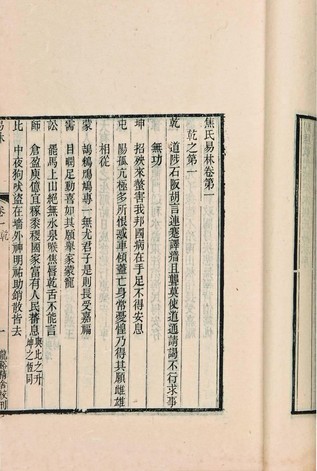 焦氏易林卷第一
乾之第一
乾　道陟石阪胡言連蹇譯瘖且聾莫使道通請謁不行求事
無功
坤　招殃來螫害我邦國病在手足不得安息
屯　陽孤亢極多所恨惑車傾蓋亡身常憂惶乃得其願雌雄
相從
蒙　鳲鳩專一無尤君子是則長受嘉福
需　目瞤足動喜如其願舉家蒙寵
訟　罷馬上山絕無水泉喉焦脣乾舌不能言
師　倉盈庾億宜稼黍稷國家富有人民蕃息與此之升
坤之恆同
比　中夜狗吠盜在牆外神明祐助銷散皆去
易林
卷一　乾
一